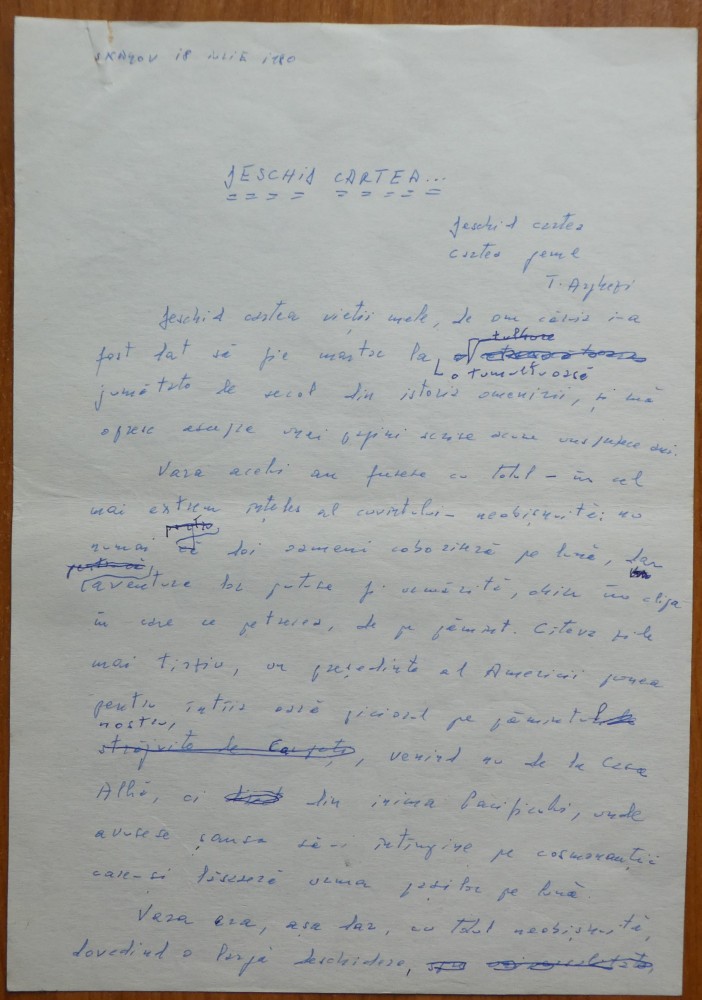 18 iulie 1980
DESCHID CARTEA...
Deschid cartea
Cartea geme
T. Arghezi
Deschid cartea vieții mele, de om căruia i-a
tulbure
fost dat să fie martor la
o tumultuoasă
jumătate de secol din istoria omenirii, și mă
opresc asupra unei pagini scrise
Vara acelui an fusese cu totul - în cel
mai extrem înțeles al cuvîntului - neobișnuită: nu
pentru
numai că doi oameni coborîseră pe lună, dar
aventura lor putuse fi urmărită, chiar în clipa
în care se petrecea, de pe pămînt. Cîteva zile
mai tîrziu, un președinte al Americii punea
pentru întîia oară piciorul pe pămîntul
nostru,
străjuite de Carpați, venind nu de la Casa
Albă, ci din inima Pacificului, unde
avusese șansa să-i întîmpine pe cosmonauții
care-și lăsaseră urma pașilor pe lună.
Vara era, așa dar, cu totul neobișnuită,
dovedind o largă deschidere,